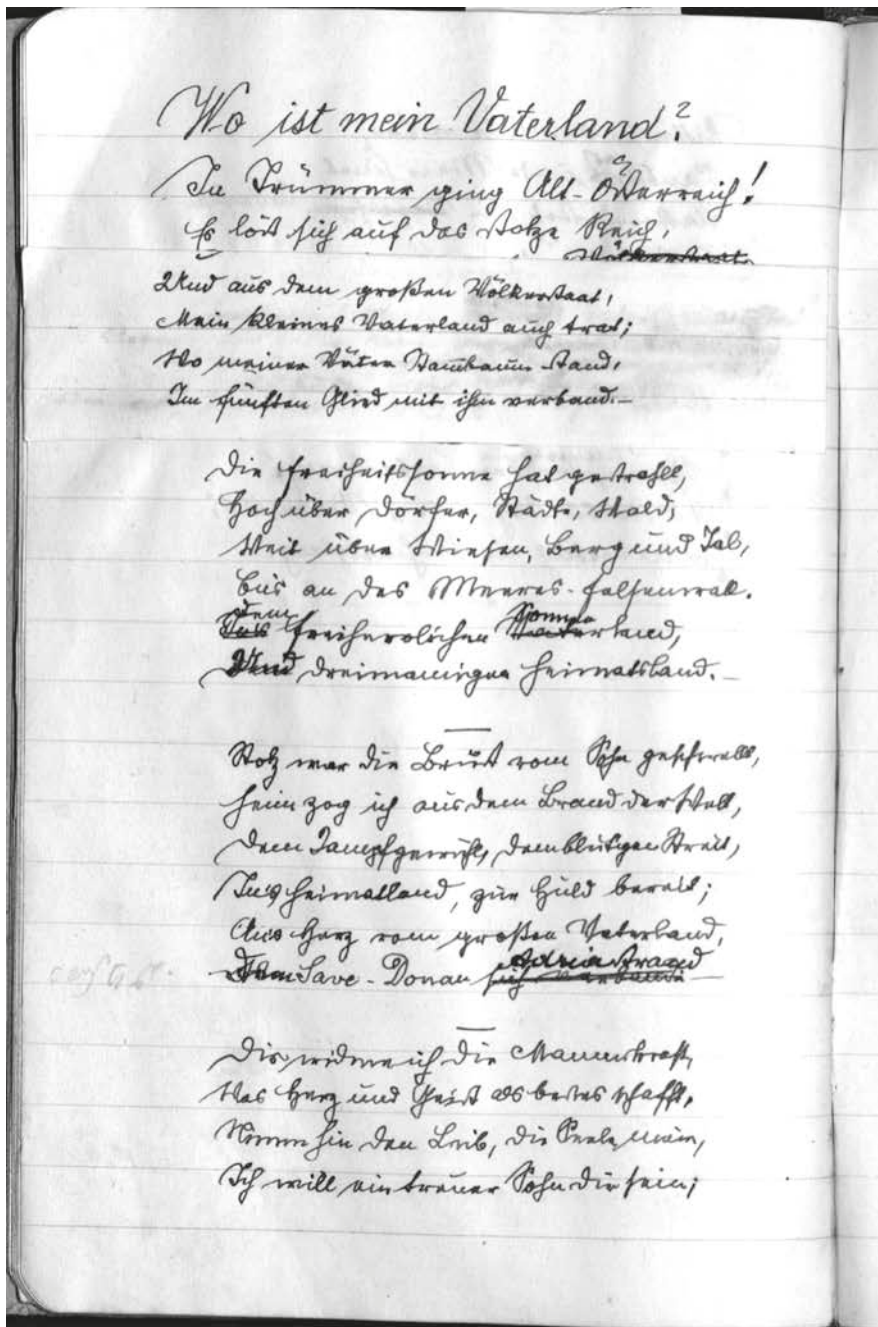 Wo ist mein Vaterland?
In Trümmer ging Alt-Österreich!
Es löst sich auf das stolze Reich,
Völkerstaat
Und aus dem großen Völkerstaat,
Mein kleines Vaterland auch trat;
Wo meiner Väter Stammbaum stand,
Im fünften Glied mit ihm verband.–
Die Freiheitssonne hat gestrahlt,
Hoch über Dörfer, Städte, Wald,
Weit über Wiesen, Berg und Tal,
Bis an des Meeres-Felsenwall.
Dem
freiherrlichen Vaterland,
Und dreinamigen Heimatsland.–
Stolz war die Brust vom Sohn geschwellt,
Heim zog ich aus dem Brand der Welt,
Dem Dampfgewühl, dem blutgen Streit,
Ins Heimatland, zur Huld bereit;
Ans Herz vom großen Vaterland,
Adriastrand
Dem Save-Donau sich verband
Dir widme ich die Manneskraft,
Was Herz und Geist als bestes schafft,
Nimm hin den Leib, die Seele mein,
Ich will ein treuer Sohn dir sein;